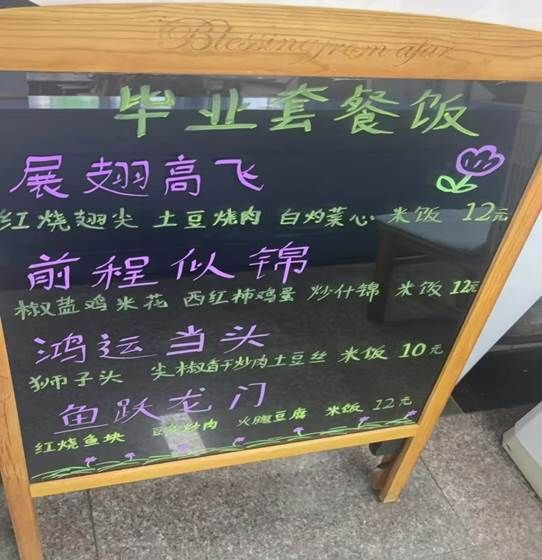 Blessing from afar
毕业套餐饭
展翅高飞
红烧翅尖 土豆烧肉 白灼菜心 米饭 12元
前程似锦
椒盐鸡米花 西红柿鸡蛋 炒什锦 米饭 12元
鸿运当头
狮子头 尖椒香干炒肉 土豆丝 米饭 10元
鱼跃龙门
红烧鱼块 炒肉 火腿豆腐 米饭 12元